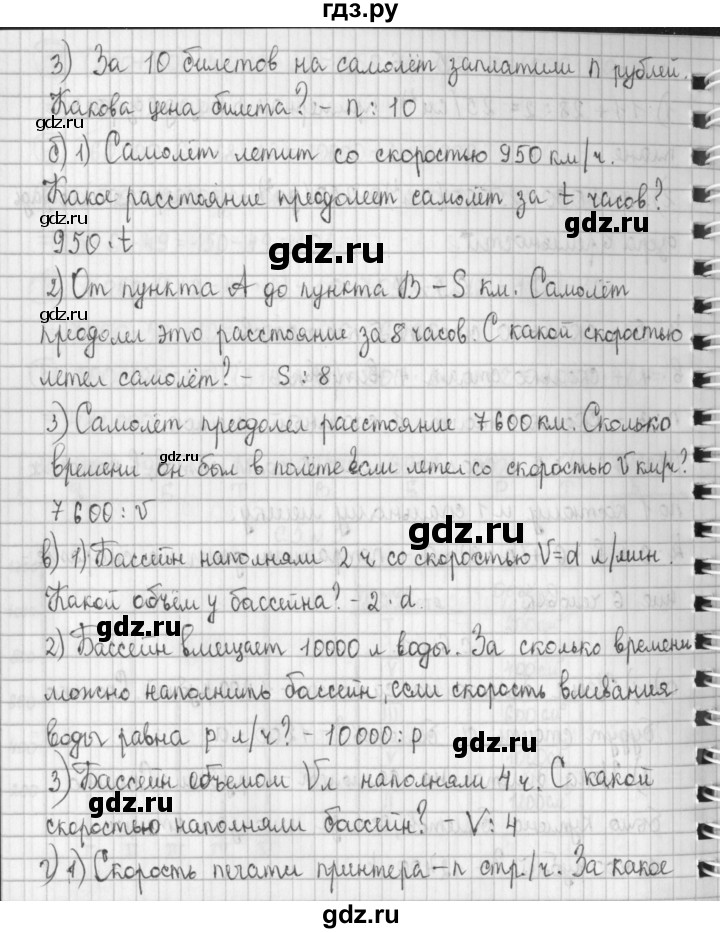 гдз.ру
3) За 10 билетов на самолёт заплатили n рублей.
Какова цена билета? – n : 10
gdz.ru
б) 1) Самолёт летит со скоростью 950 км/ч.
Какое расстояние преодолеет самолёт за t часов?
gdz.ru
gdz.ru
950 · t
gdz.ru
2) От пункта А до пункта В – S км. Самолёт
gdz.ru
преодолел это расстояние за 8 часов. С какой скоростью
летел самолёт? – S : 8
3) Самолёт преодолел расстояние 7600 км. Сколько
времени он был в полёте если летел со скоростью V км/ч?
gdz.ru
7600 : v
gdz.ru
в) 1) Бассейн наполняли 2 ч со скоростью V=d л/мин.
Какой объём у бассейна? – 2 · d.
gdz.ru
2) Бассейн вмещает 10000 л воды. За сколько времени
можно наполнить бассейн, если скорость вливания
воды равна p л/ч? – 10000 : p
gdz.ru
3) Бассейн объемом V л наполняли 4 ч. С какой
gdz.ru
скоростью наполняли бассейн? – V : 4
г) 1) Скорость печати принтера – n стр./ч. За какое
gdz.ru
gdz.ru